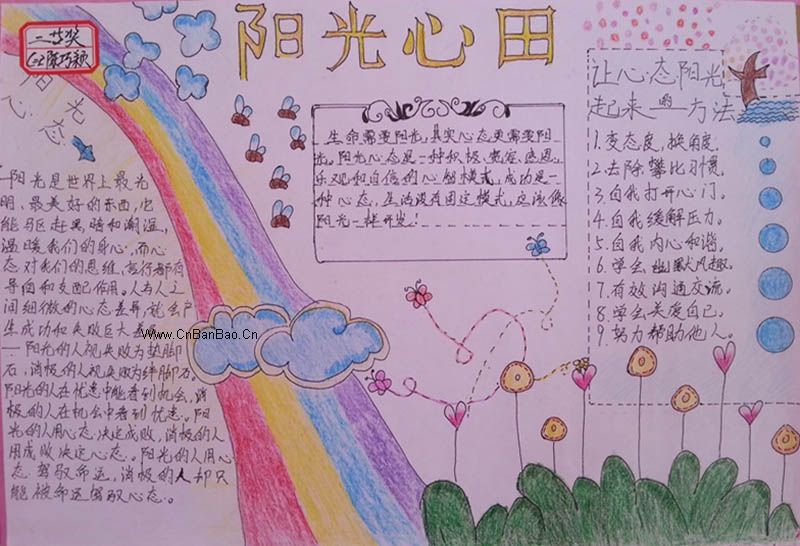 阳光心田
二等奖
阳光
心态
阳光是世界上最光
明、最美好的东西,它
能驱赶黑暗和潮湿,
温暖我们的身心,而心
态对我们的思维、言行都有
导向和支配作用。人与人之
间细微的心态差异,就会产
生成功和失败巨大差异
www.CnBanBao.Cn
阳光的人视失败为垫脚
石,消极的人视失败为绊脚石。
阳光的人在忧患中能看到机会,消
极的人在机会中看到忧患。阳
光的人用心态决定成败,消极的人
用成败决定心态。阳光的人用心
态驾驭命运,消极的人却只
能被命运驾驭心态。
生命需要阳光,其实心态更需要阳
光。阳光心态是一种积极、宽容、感恩、
乐观和自信的心智模式,成功是一
种心态,生活没有固定模式,应该像
阳光一样开发!
让心态阳光
起来的方法
1.变态度,换角度.
2.去除攀比习惯.
3.自我打开心门.
4.自我缓解压力.
5.自我内心和谐.
6.学会幽默风趣.
7.有效沟通交流.
8.学会关爱自己.
9.努力帮助他人.